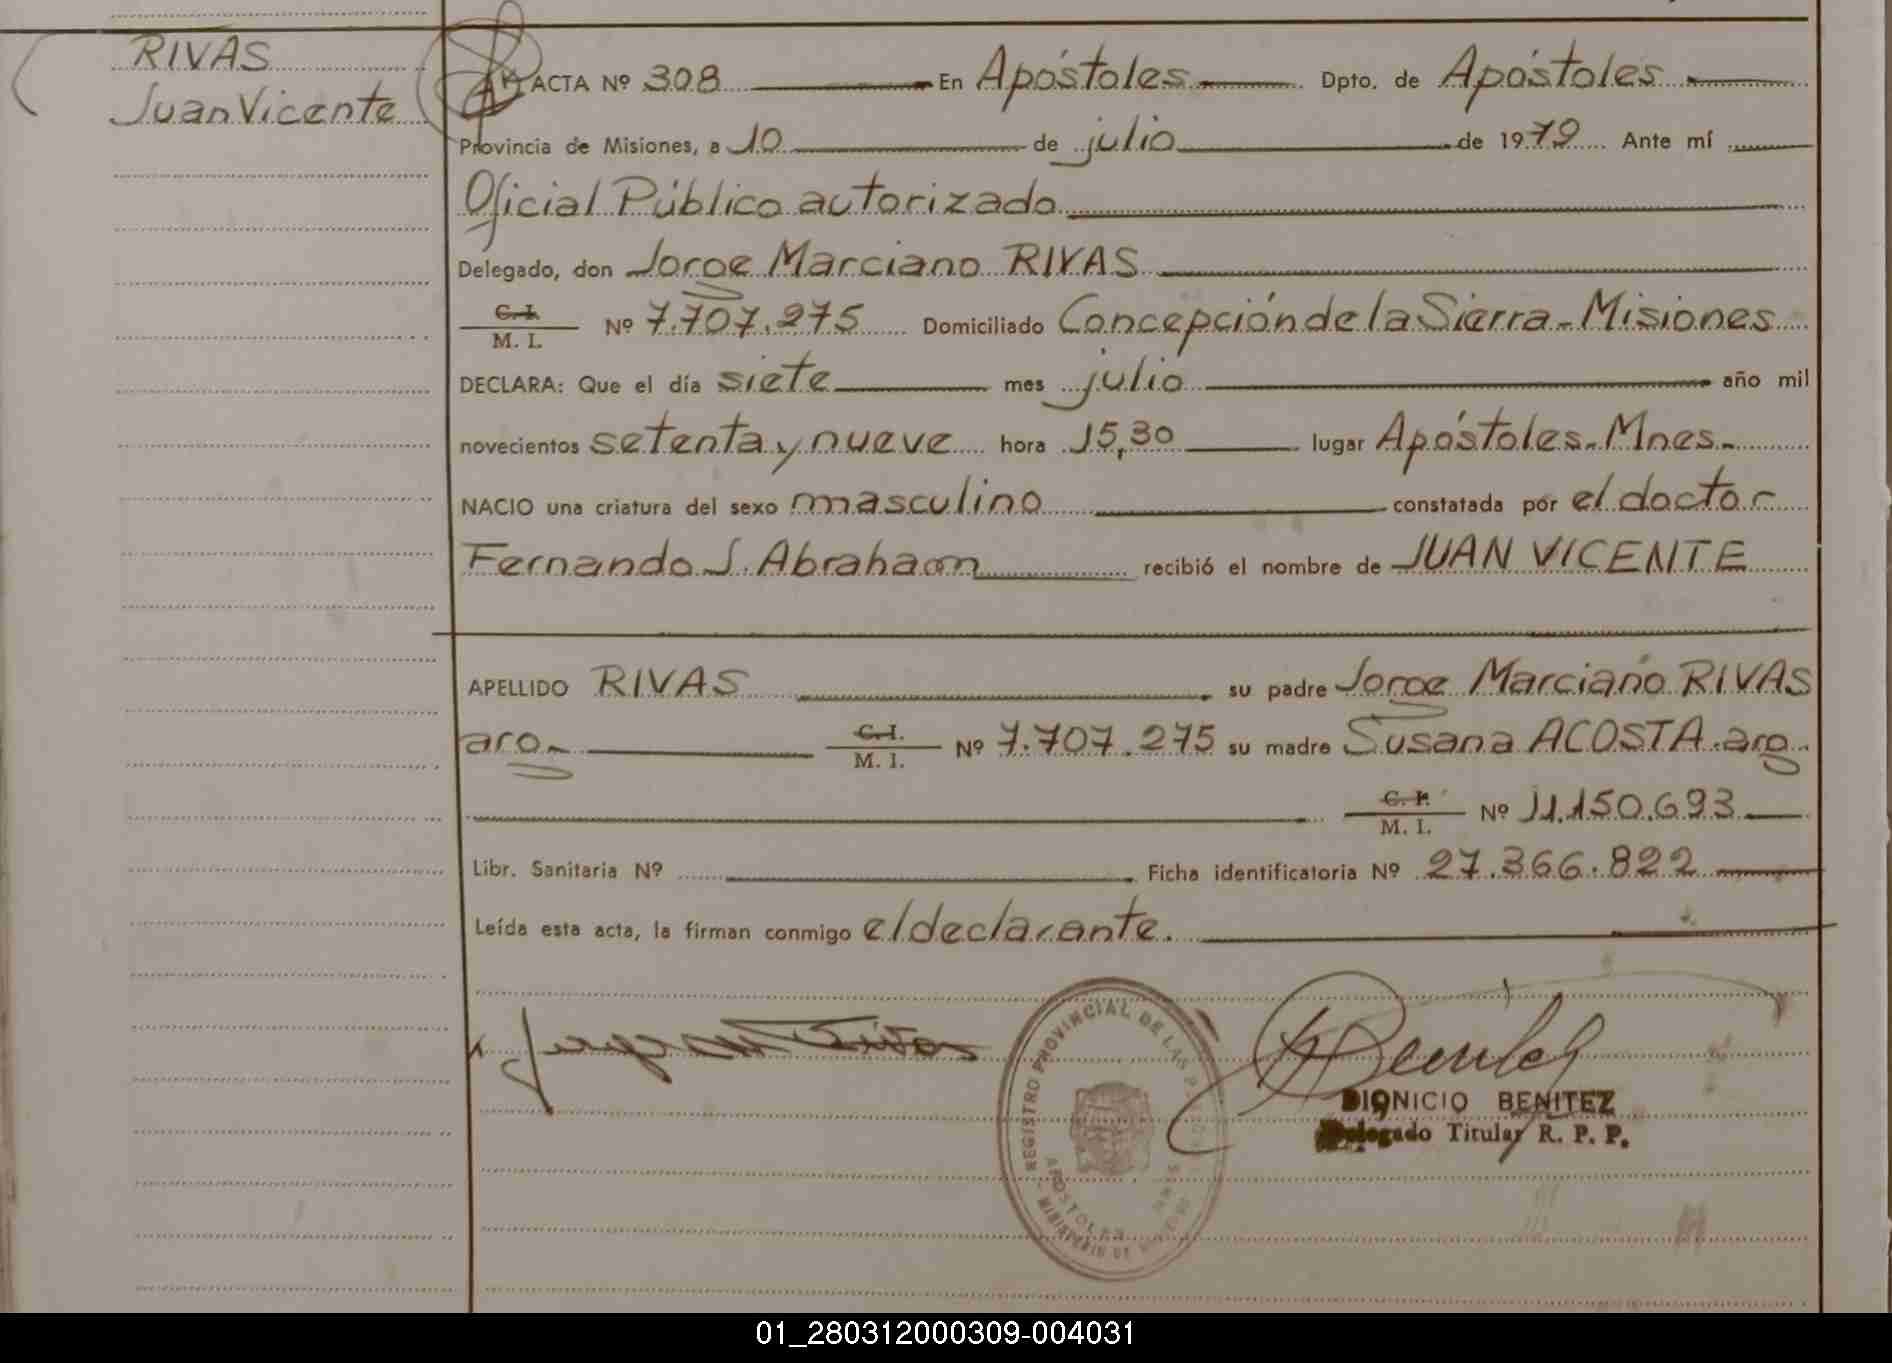 RIVAS
Juan Vicente
ACTA Nº 308 En Apóstoles Dpto. de Apóstoles
Provincia de Misiones, a 10 de julio de 1979 Ante mí
Oficial Público autorizado
Delegado, don Jorge Marciano RIVAS
C. I.
M. I. Nº 7.707.275 Domiciliado Concepción de la Sierra - Misiones
DECLARA: Que el día siete mes julio año mil
novecientos setenta y nueve hora 15,30 lugar Apóstoles - Mnes.
NACIO una criatura del sexo masculino constatada por el doctor
Fernando J. Abraham recibió el nombre de JUAN VICENTE
APELLIDO RIVAS su padre Jorge Marciano RIVAS
arg. C. I. M. I. Nº 7.707.275 su madre Susana ACOSTA. arg.
C. I.
M. I. Nº 11.150.693
Libr. Sanitaria Nº Ficha identificatoria Nº 27.366.822
Leída esta acta, la firman conmigo el declarante.
REGISTRO PROVINCIAL DE LAS
APOSTOLES
MINISTERIO DE
DIONICIO BENITEZ
Delegado Titular R. P. P.
01_280312000309-004031